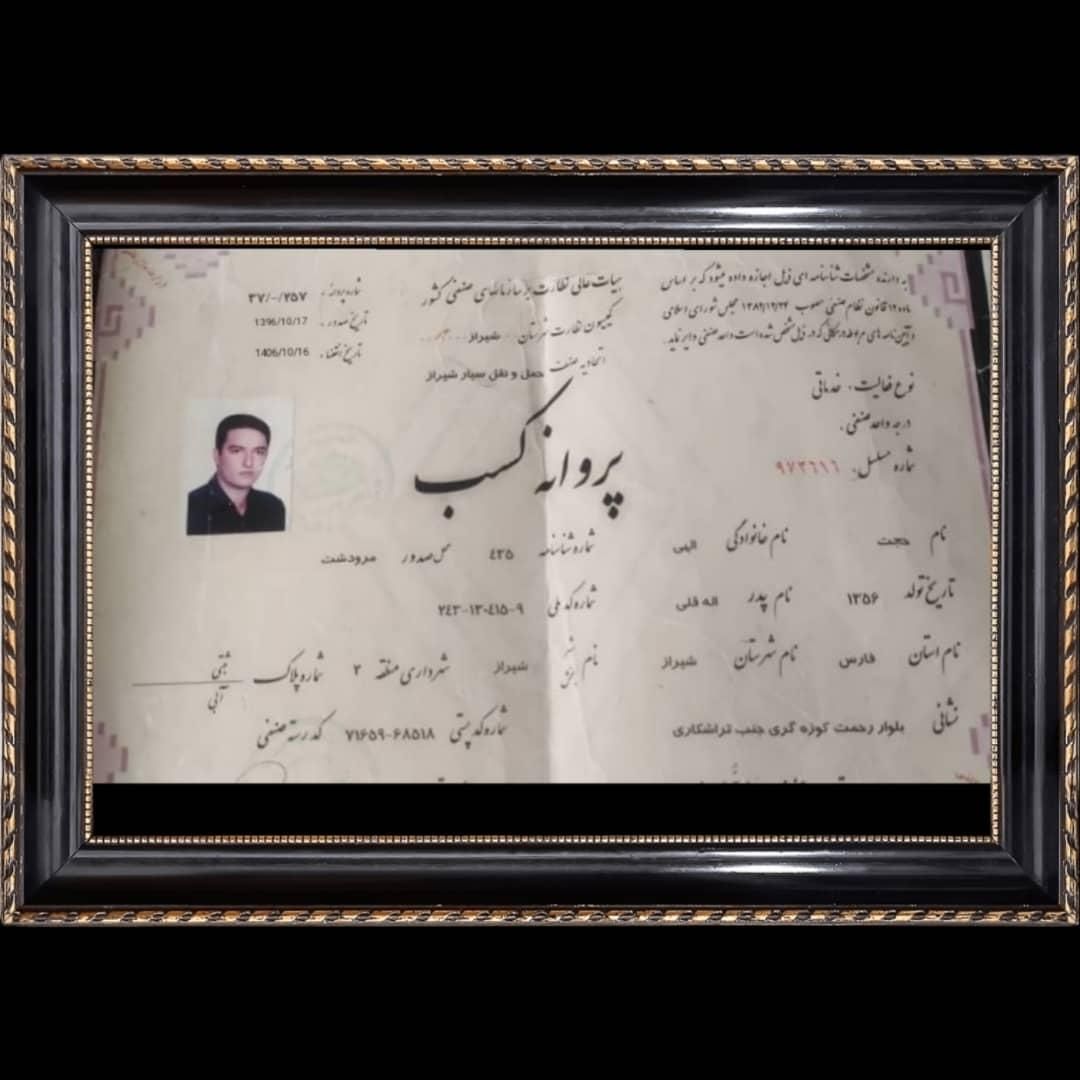 به دارنده مشخصات شناسنامه ای ذیل اجازه داده میشود که بر اساس
ماده ۱۲ قانون نظام صنفی مصوب ۱۳۸۲/۱۲/۲۴ مجلس شورای اسلامی
و آیین نامه های مربوطه در مکانی که در ذیل مشخص شده است واحد صنفی دایر نماید.
هیات عالی نظارت بر سازمانهای صنفی کشور
کمیسیون نظارت شهرستان شیراز
اتحادیه صنف حمل و نقل سیار شیراز
شماره پروانه : ۳۷/-/۲۵۷
تاریخ صدور : 1396/10/17
تاریخ انقضاء : 1406/10/16
نوع فعالیت : خدماتی
درجه واحد صنفی :
شماره مسلسل: ۹۷۳۶۱۶
پروانه کسب
نام حجت نام خانوادگی الهی شماره شناسنامه ٤٣٥ محل صدور مرودشت
تاریخ تولد ۱۳۵۶ نام پدر اله قلی شماره کد ملی ۲٤۳-۱۳-٤۱۵-۹
نام استان فارس نام شهرستان شیراز نام شهر بخش شیراز شهرداری منطقه ۳ شماره پلاک ثبتی آبی
نشانی بلوار رحمت کوزه گری جنب تراشکاری شماره کد پستی ۷۱۶۵۹-۶۸۵۱۸ کد رسته صنفی